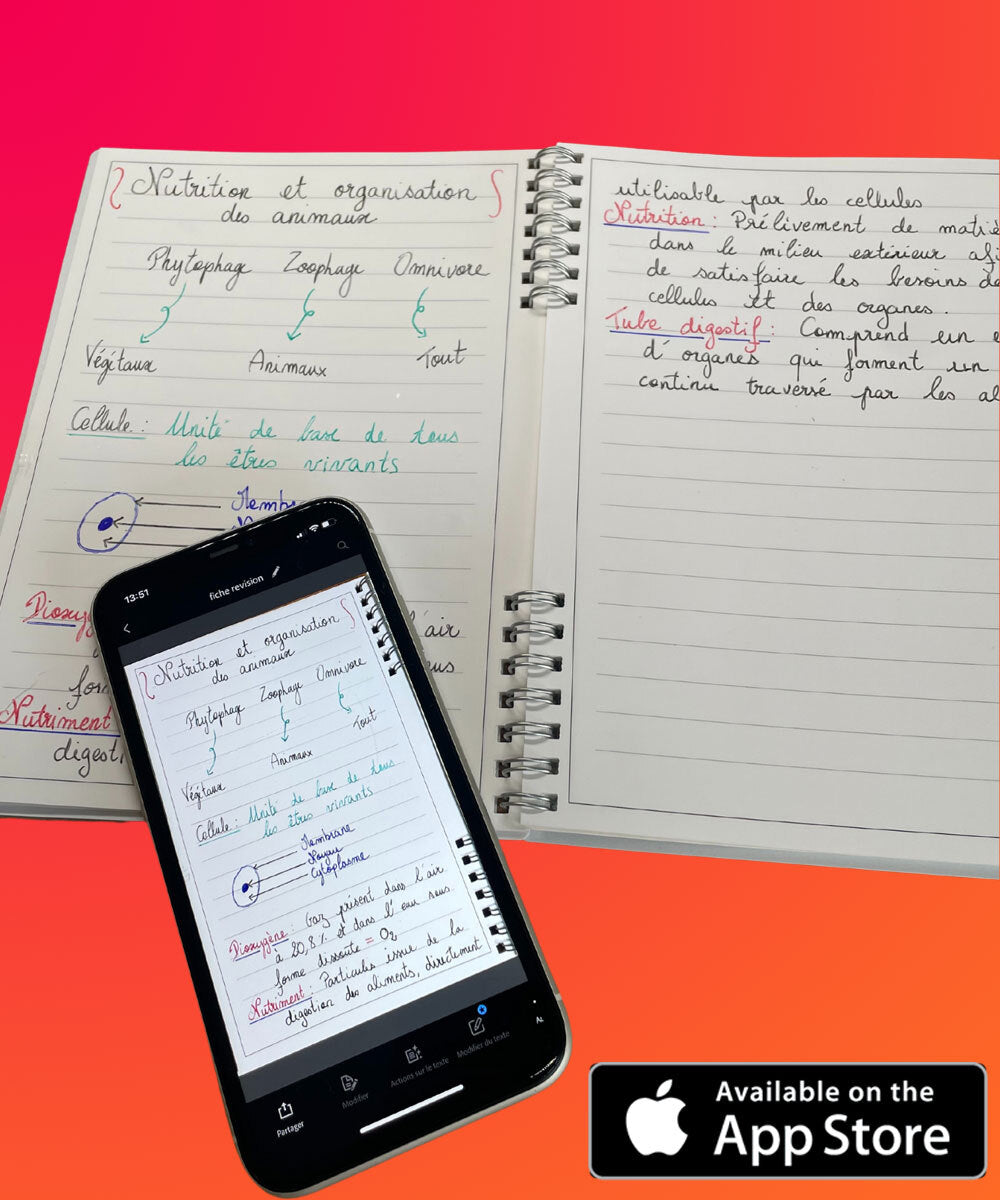 Nutrition et organisation
des animaux
Phytophage Zoophage Omnivore
Végétaux Animaux Tout
Cellule : Unité de base de tous
les êtres vivants
Memb
Dioxyg
l'air
for
ous
Nutriment
digest
utilisable par les cellules
Nutrition : Prélivement de matiè
dans le milieu extérieur afi
de satisfaire les besoins de
cellules et des organes.
Tube digestif : Comprend un e
d'organes qui forment un
continu traversé par les al
13:51
fiche revision
Nutrition et organisation
des animaux
Phytophage Zoophage Omnivore
Végétaux Animaux Tout
Cellule : Unité de base de tous
les êtres vivants
Membrane
Noyau
Cytoplasme
Dioxygène : Gaz présent dans l'air
à 20,8% et dans l'eau sous
forme dissoute = O₂
Nutriment : Particules issue de la
digestion des aliments, directement
Partager
Modifier
Actions sur le texte
Modifier du texte
Available on the
App Store